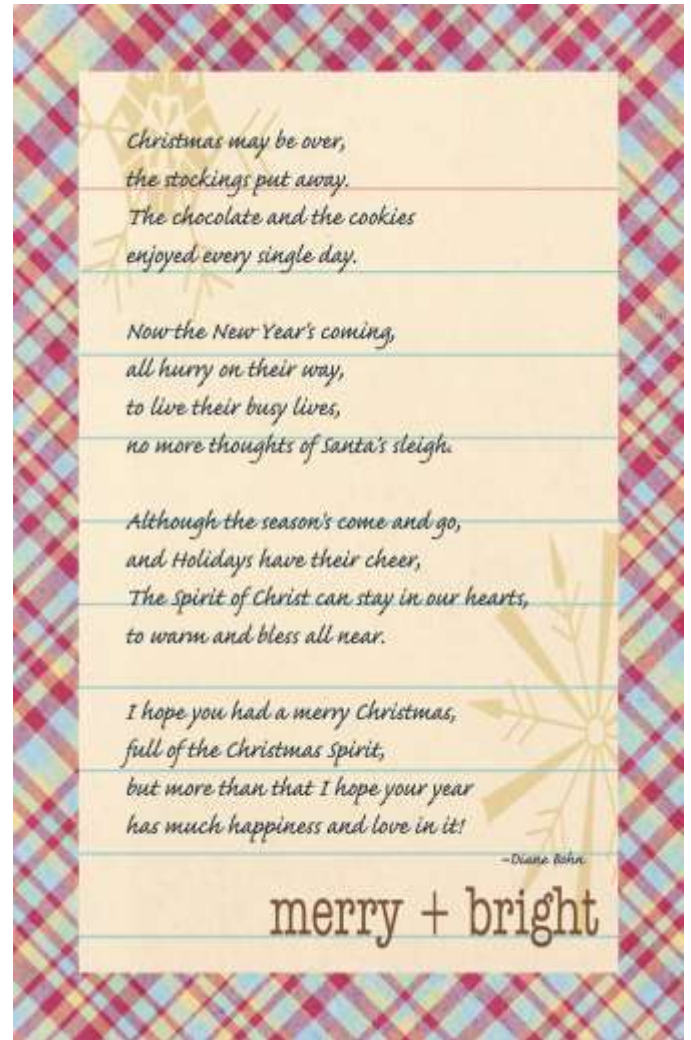 Christmas may be over,
the stockings put away.
The chocolate and the cookies
enjoyed every single day.
Now the New Year's coming,
all hurry on their way,
to live their busy lives,
no more thoughts of Santa's sleigh.
Although the season's come and go,
and Holidays have their cheer,
The Spirit of Christ can stay in our hearts,
to warm and bless all near.
I hope you had a merry Christmas,
full of the Christmas Spirit,
but more than that I hope your year
has much happiness and love in it!
~Diane Bohn
merry + bright